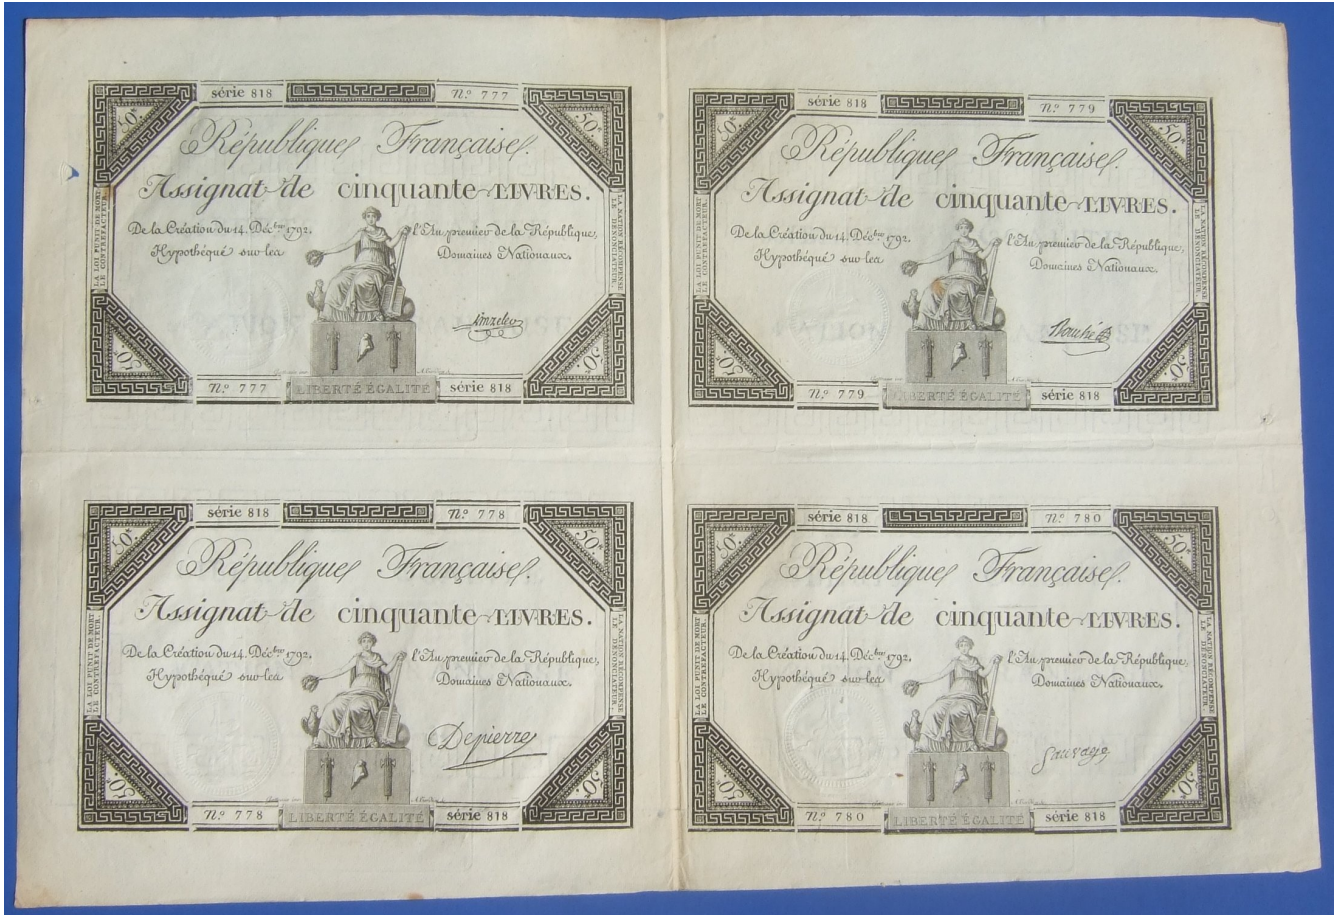 série 818 N.º 777
50ᵗ 50ᵗ
République Française.
Assignat de cinquante LIVRES.
De la Création du 14. Déc.bre 1792, l'An premier de la République,
Hypothéqué sur les Domaines Nationaux.
LA LOI PUNIT DE MORT
LE CONTREFACTEUR.
LA NATION RÉCOMPENSE
LE DÉNONCIATEUR.
50ᵗ 50ᵗ
N.º 777 LIBERTÉ ÉGALITÉ série 818
série 818 N.º 779
50ᵗ 50ᵗ
République Française.
Assignat de cinquante LIVRES.
De la Création du 14. Déc.bre 1792, l'An premier de la République,
Hypothéqué sur les Domaines Nationaux.
LA LOI PUNIT DE MORT
LE CONTREFACTEUR.
LA NATION RÉCOMPENSE
LE DÉNONCIATEUR.
50ᵗ 50ᵗ
N.º 779 LIBERTÉ ÉGALITÉ série 818
série 818 N.º 778
50ᵗ 50ᵗ
République Française.
Assignat de cinquante LIVRES.
De la Création du 14. Déc.bre 1792, l'An premier de la République,
Hypothéqué sur les Domaines Nationaux.
LA LOI PUNIT DE MORT
LE CONTREFACTEUR.
LA NATION RÉCOMPENSE
LE DÉNONCIATEUR.
Depierre
50ᵗ 50ᵗ
N.º 778 LIBERTÉ ÉGALITÉ série 818
série 818 N.º 780
50ᵗ 50ᵗ
République Française.
Assignat de cinquante LIVRES.
De la Création du 14. Déc.bre 1792, l'An premier de la République,
Hypothéqué sur les Domaines Nationaux.
LA LOI PUNIT DE MORT
LE CONTREFACTEUR.
LA NATION RÉCOMPENSE
LE DÉNONCIATEUR.
Sauvage
50ᵗ 50ᵗ
N.º 780 LIBERTÉ ÉGALITÉ série 818